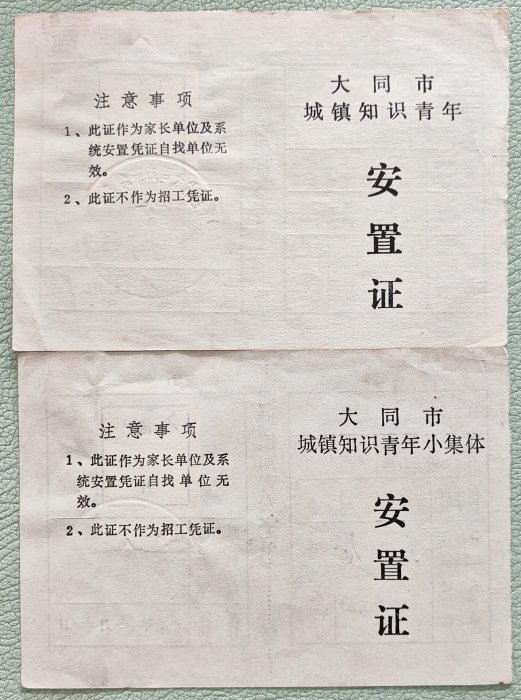 注意事项
1、此证作为家长单位及系
统安置凭证自找单位无
效。
2、此证不作为招工凭证。
大同市
城镇知识青年
安
置
证
注意事项
1、此证作为家长单位及系
统安置凭证自找单位无
效。
2、此证不作为招工凭证。
大同市
城镇知识青年小集体
安
置
证